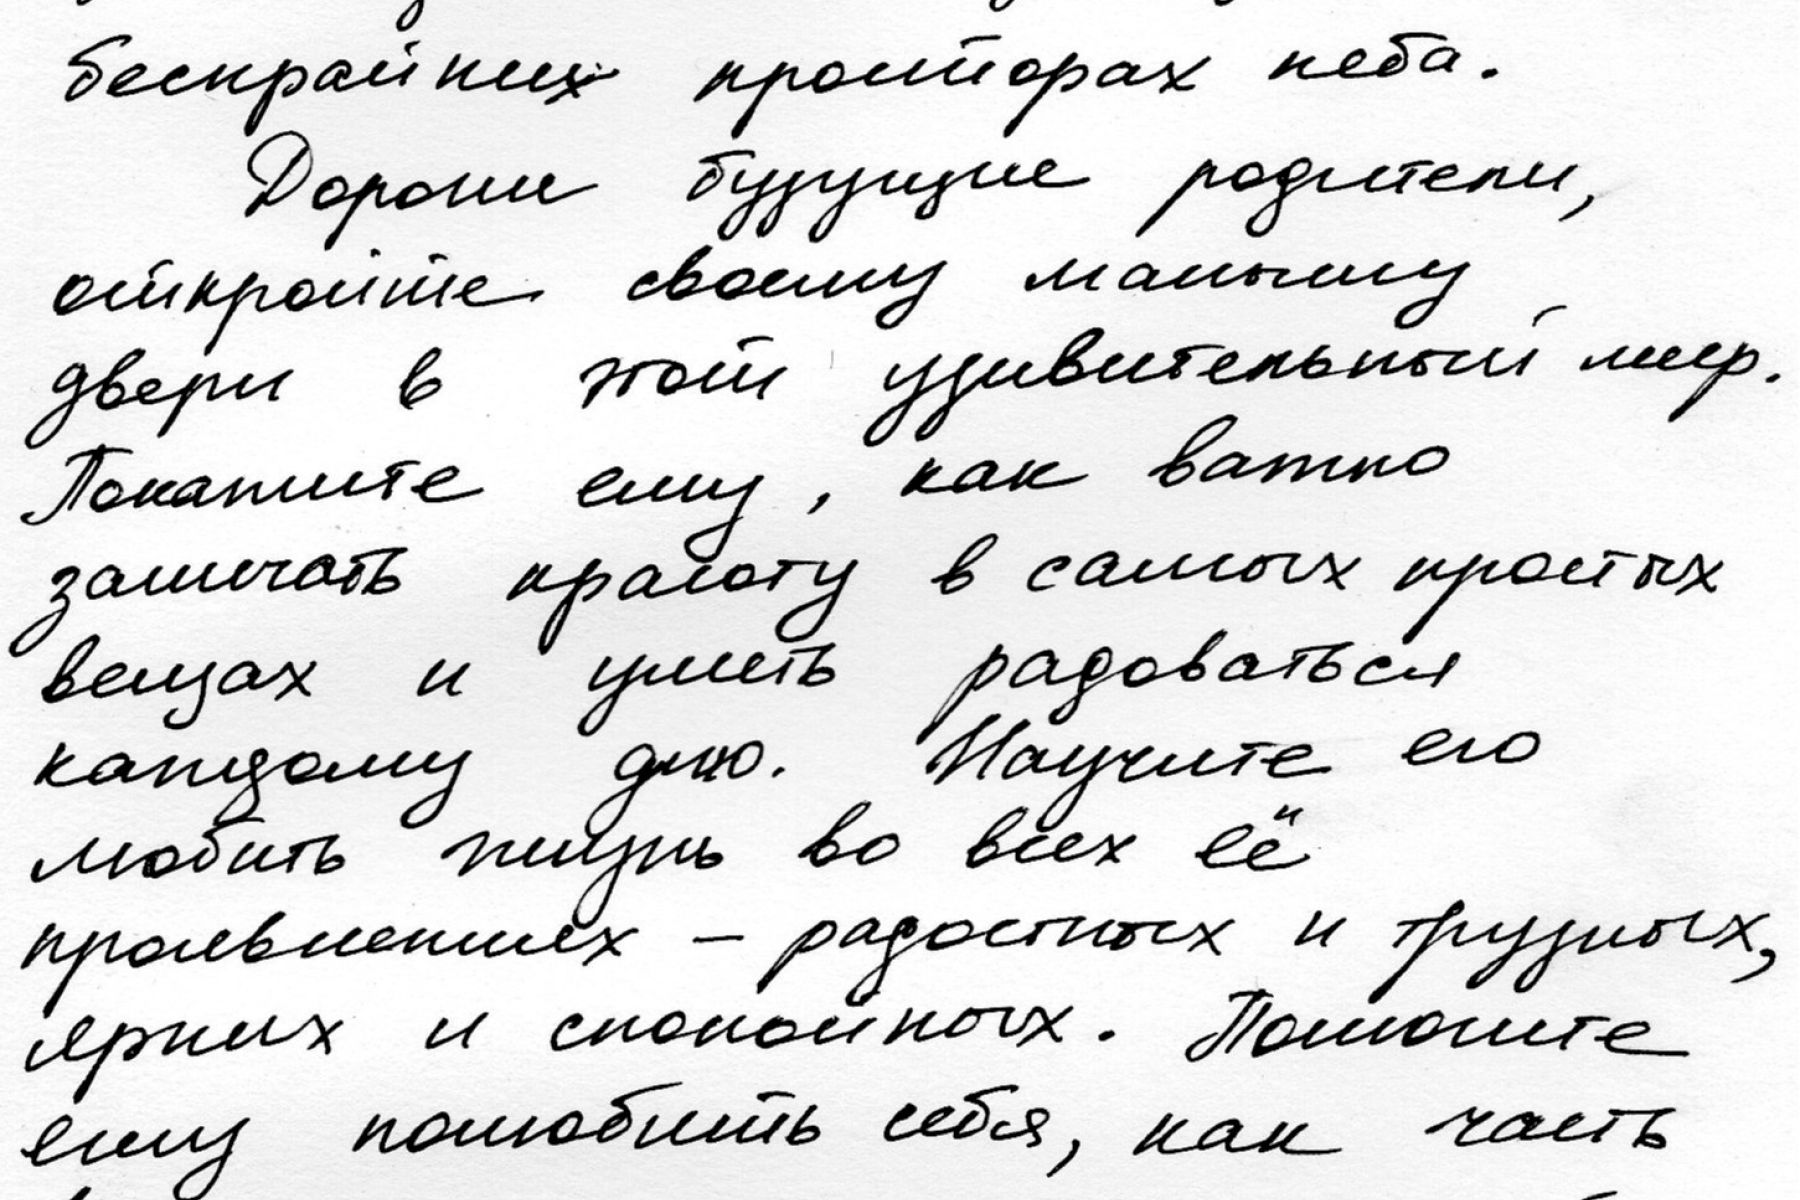 бескрайних просторах неба.
Дорогие будущие родители,
откройте своему малышу
двери в этот удивительный мир.
Покажите ему, как важно
замечать красоту в самых простых
вещах и уметь радоваться
каждому дню. Научите его
любить жизнь во всех её
проявлениях – радостных и трудных,
ярких и спокойных. Помогите
ему полюбить себя, как часть